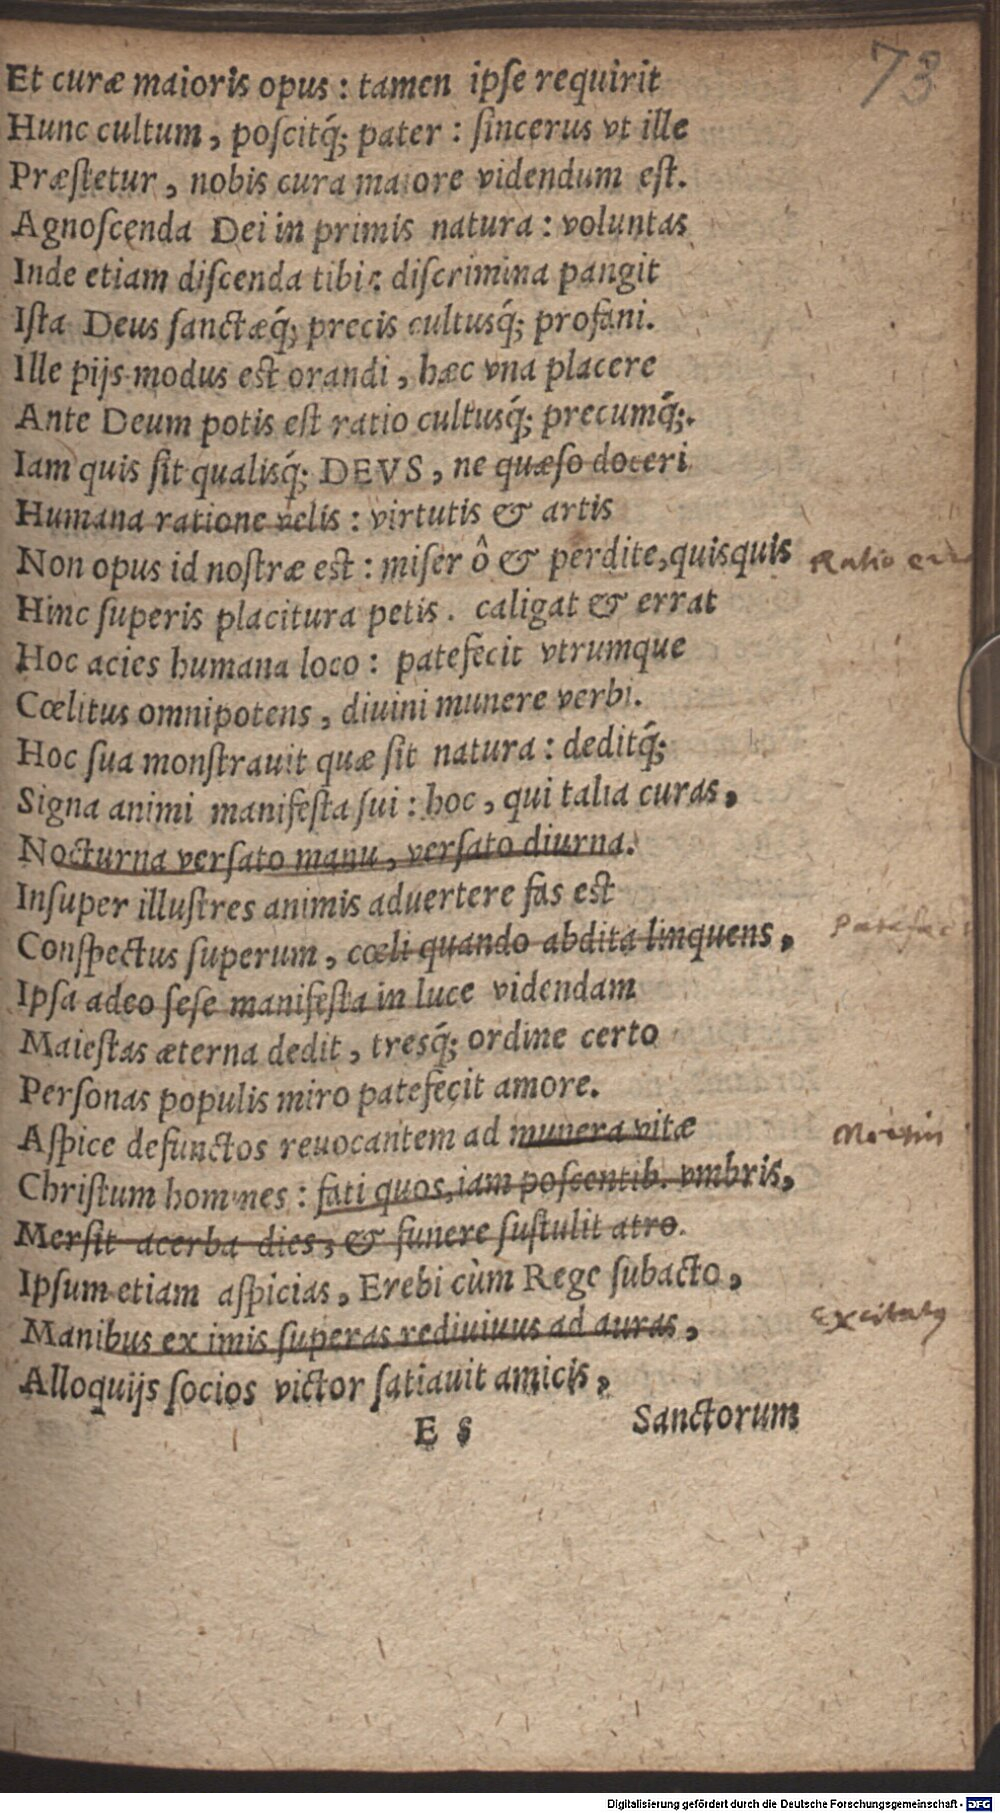 73
Et curæ maioris opus : tamen ipſe requirit
Hunc cultum , poſcitq́; pater : ſincerus vt ille
Præſtetur , nobis cura maiore videndum eſt.
Agnoſcenda Dei in primis natura : voluntas
Inde etiam diſcenda tibi : diſcrimina pangit
Iſta Deus ſanctæq́; precis cultusq́; profani.
Ille pijs modus eſt orandi , hæc vna placere
Ante Deum potis eſt ratio cultusq́; precumq́;.
Iam quis ſit qualisq́; DEVS , ne quæſo doceri
Humana ratione velis : virtutis & artis
Non opus id noſtræ est : miſer ô & perdite, quisquis
Ratio
Hinc ſuperis placitura petis . caligat & errat
Hoc acies humana loco : patefecit vtrumque
Cœlitus omnipotens , diuini munere verbi.
Hoc ſua monſtrauit quæ ſit natura : deditq́;
Signa animi manifeſta ſui : hoc , qui talia curas,
Nocturna verſato manu , verſato diurna.
Inſuper illuſtres animis aduertere fas eſt
Conſpectus ſuperum , cœli quando abdita linquens ,
Ipſa adeo ſeſe manifeſta in luce videndam
Maieſtas æterna dedit , tresq́; ordine certo
Perſonas populis miro patefecit amore.
Aſpice defunctos reuocantem ad munera vitæ
Chriſtum homines : fati quos, iam poſcentib. vmbris,
Merſit acerba dies , & funere ſuſtulit atro.
Ipſum etiam aſpicias , Erebi cùm Rege ſubacto ,
Manibus ex imis ſuperas rediuiuus ad auras ,
Alloquijs ſocios victor ſatiauit amicis,
E 5 Sanctorum
Digitalisierung gefördert durch die Deutsche Forschungsgemeinschaft - DFG